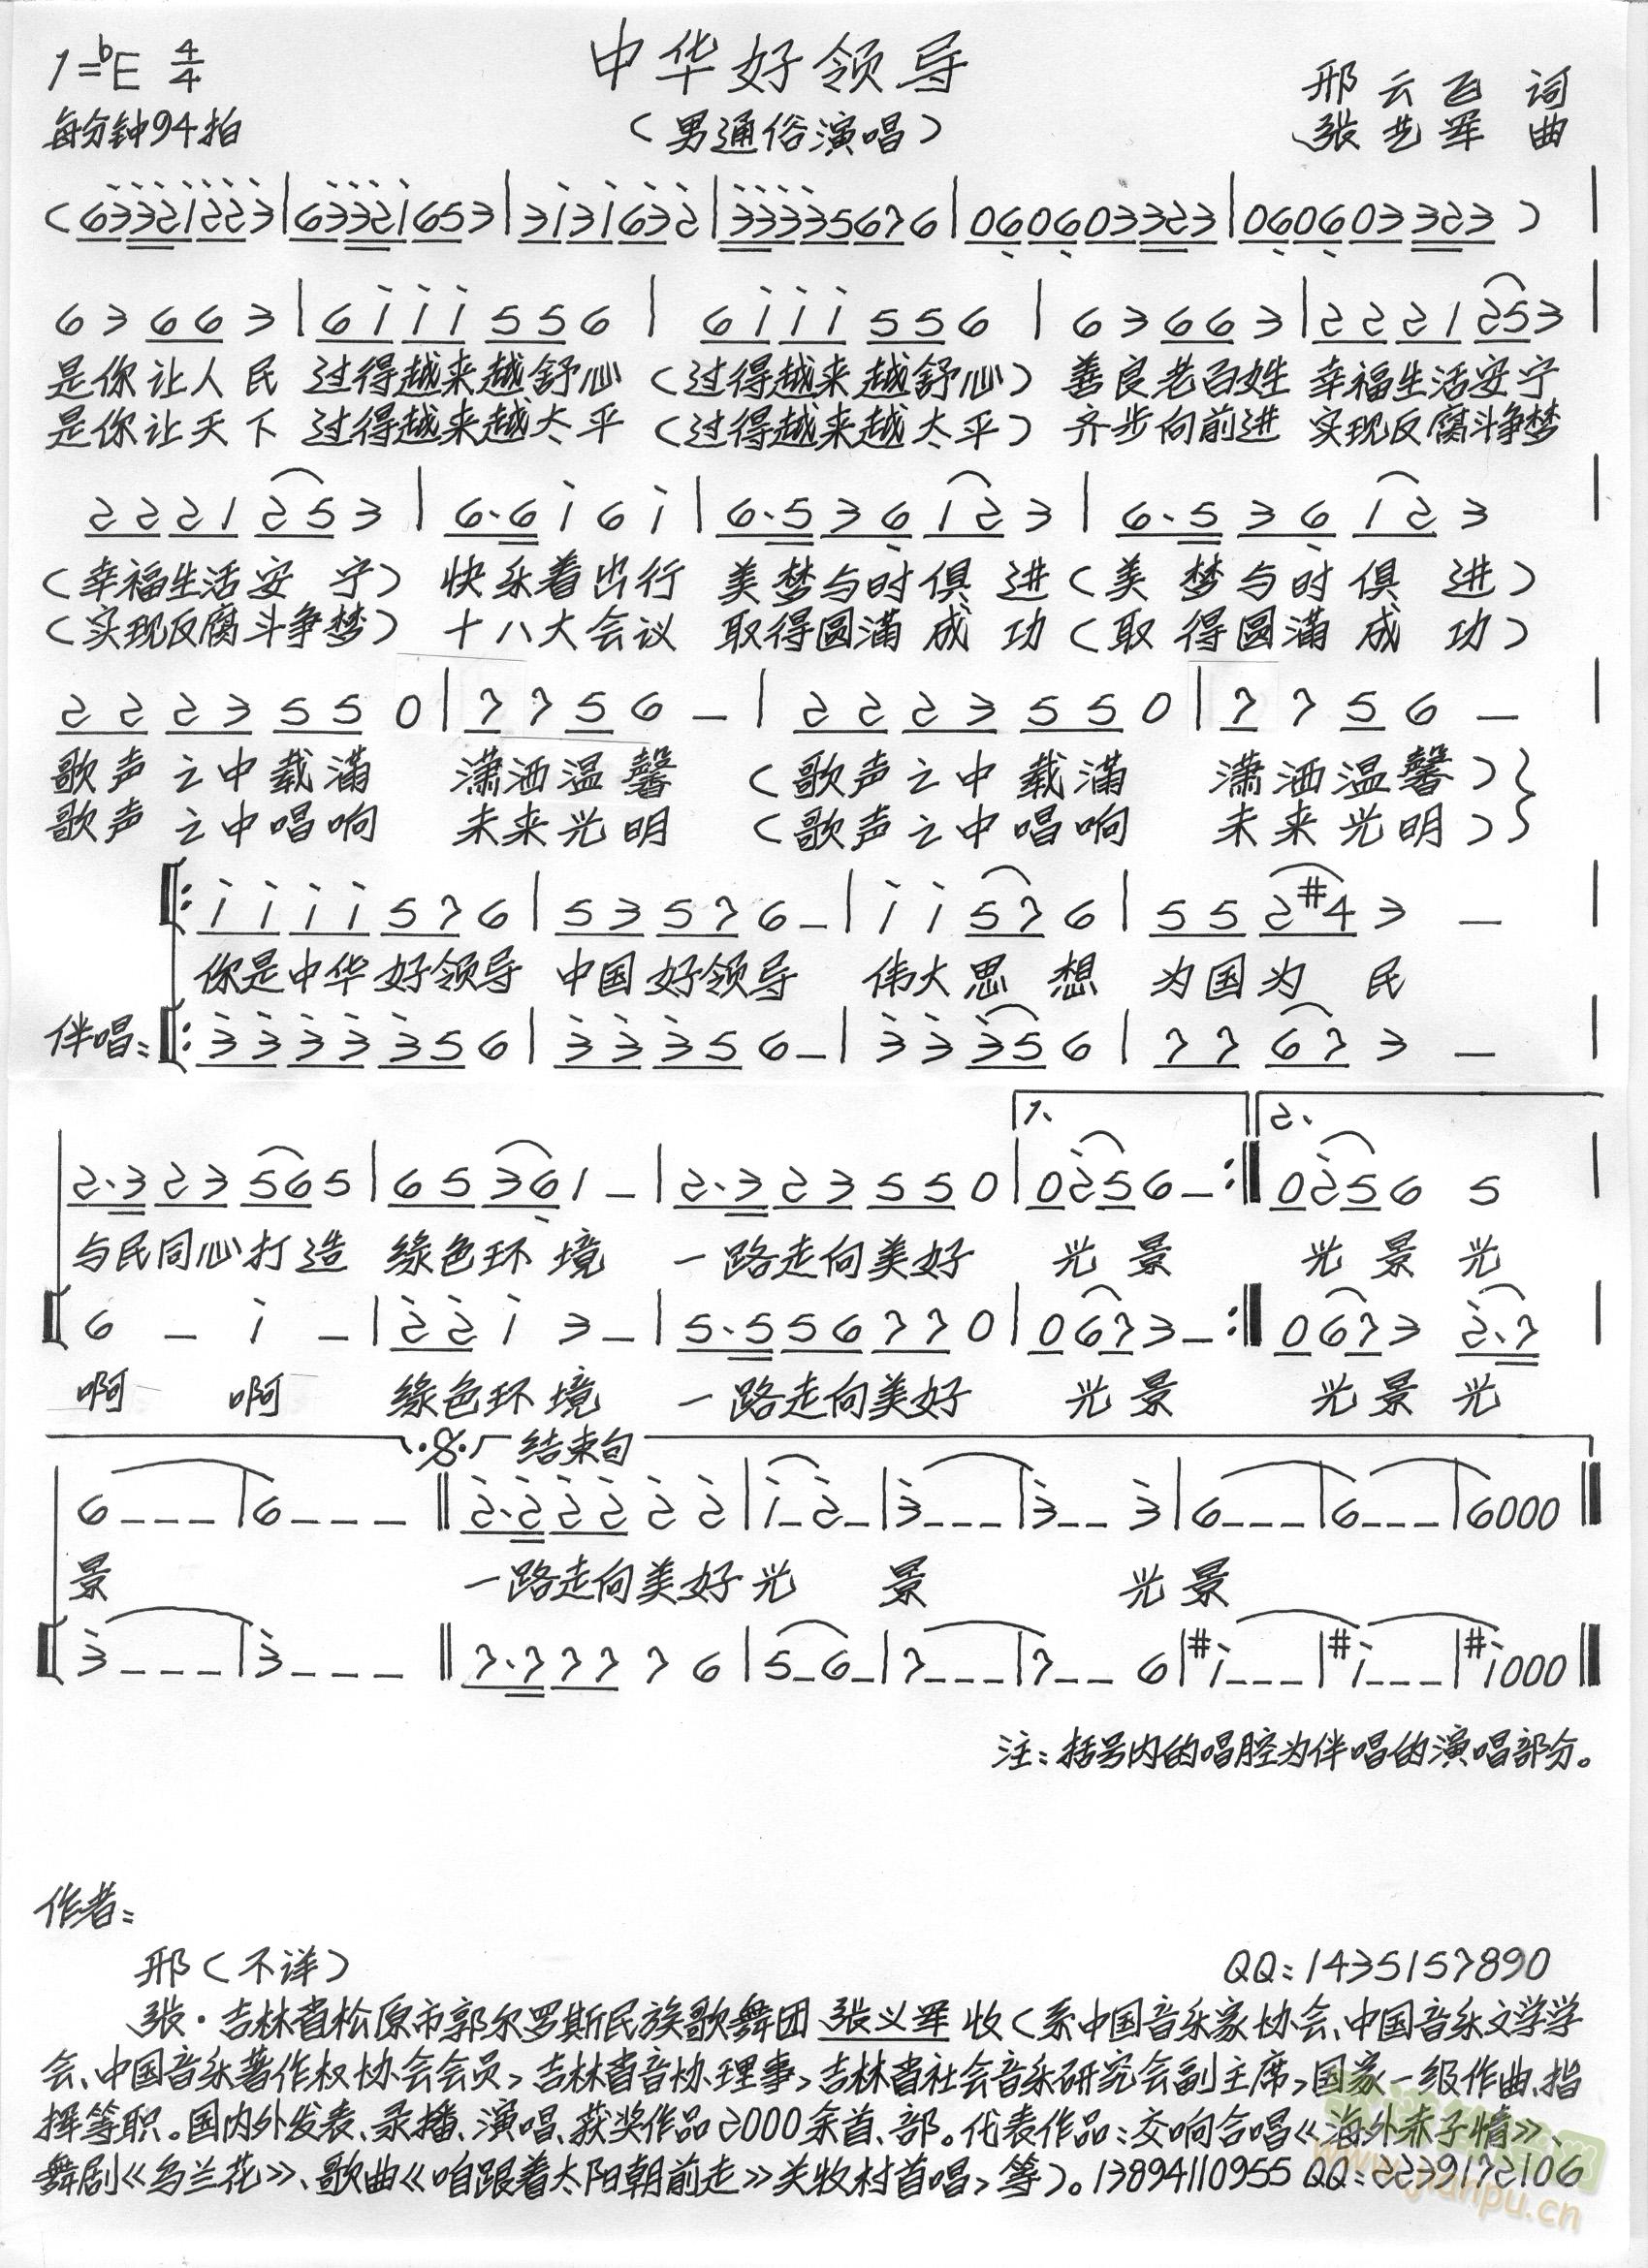 中华好领导
1=bE 4/4
邢云飞 词
每分钟94拍
(男通俗演唱)
张艺军 曲
(63321223|63321653|3131632|33335676|060603323|060603323)|
63663|6111556|6111556|63663|2221253|
是你让人民 过得越来越舒心(过得越来越舒心)善良老百姓 幸福生活安宁
是你让天下 过得越来越太平(过得越来越太平)齐步向前进 实现反腐斗争梦
2221253|6·6161|6·536123|6·536123|
(幸福生活安宁)快乐着出行 美梦与时俱进(美梦与时俱进)
(实现反腐斗争梦)十八大会议 取得圆满成功(取得圆满成功)
2223550|7756-|2223550|7756-|
歌声之中载满 潇洒温馨(歌声之中载满 潇洒温馨)}
歌声之中唱响 未来光明(歌声之中唱响 未来光明)}
[:1111576|53576-|11576|552#43-|
你是中华好领导 中国好领导 伟大思想 为国为民
伴唱:[:3333356|33356-|33356|77673-|
1、 2、
2·323565|65361-|2·323550|0256-:|02565|
与民同心打造 绿色环境 一路走向美好 光景 光景光
6-1-|2213-|5·556770|0673-:|06732·7|
啊 啊 绿色环境 一路走向美好 光景 光景光
结束句
6---|6---‖2·22222|1-2-|3---|3--3|6---|6---|6000‖
景 一路走向美好光景 光景
3---|3---‖7·77776|5-6-|7---|7--6|#1---|#1---|#1000‖
注:括号内的唱腔为伴唱的演唱部分。
作者:
邢(不详) QQ:1435157890
张·吉林省松原市郭尔罗斯民族歌舞团 张义军 收(系中国音乐家协会、中国音乐文学学
会、中国音乐著作权协会会员,吉林省音协理事,吉林省社会音乐研究会副主席,国家一级作曲、指
挥等职。国内外发表、录播、演唱、获奖作品2000余首、部。代表作品:交响合唱《海外赤子情》、
舞剧《乌兰花》、歌曲《咱跟着太阳朝前走》关牧村首唱,等)。13894110955 QQ:2239172106